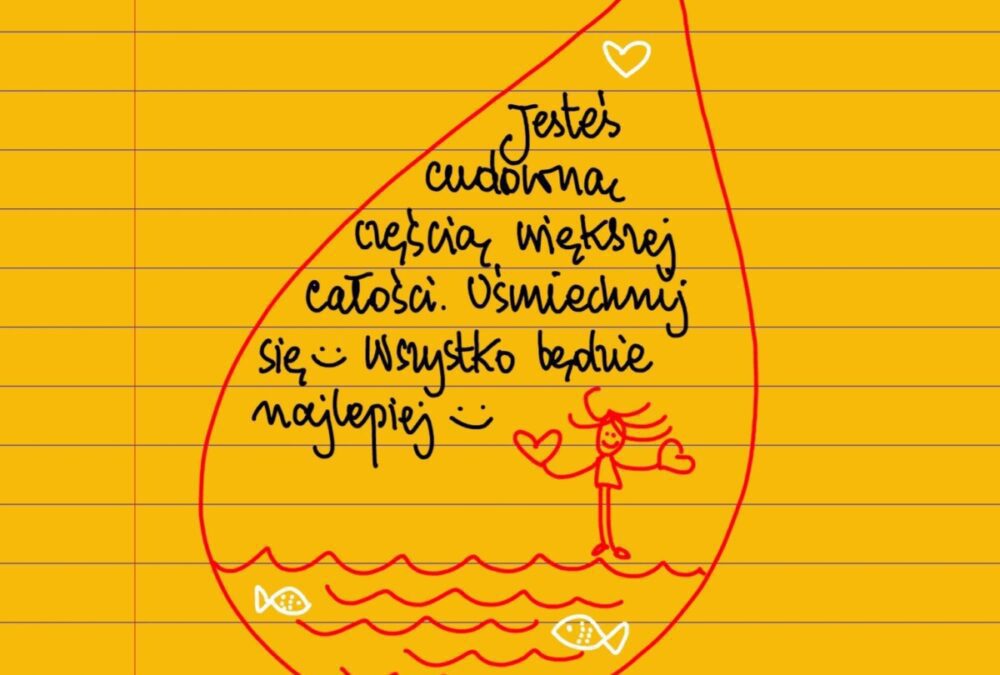 Jesteś
cudowną
częścią większej
całości. Uśmiechnij
się :) Wszystko będzie
najlepiej :)